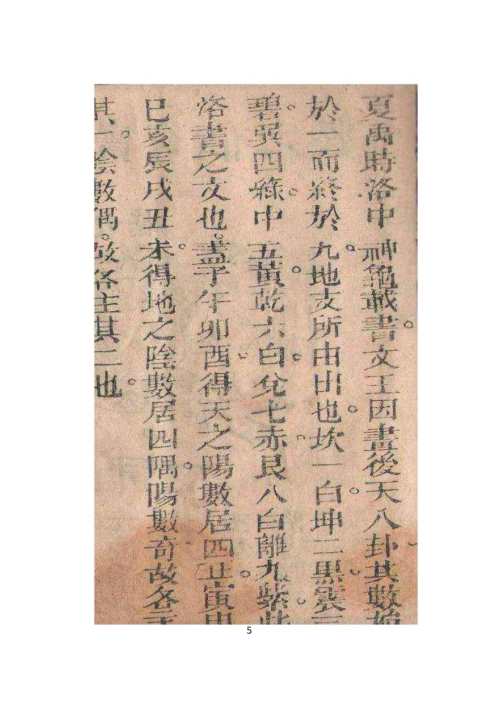 夏禹時洛中神龜載書。文王因畫後天八卦其數始
於一而終於九。地支所由出也。坎一白。坤二黑。震三
碧。巽四綠。中五黃。乾六白。兌七赤。艮八白。離九紫。此
洛書之文也。蓋子午卯酉。得天之陽數。居四正。寅申
巳亥辰戌丑未。得地之陰數居四隅。陽數奇故各主
其一。陰數偶。故各主其二也。
5